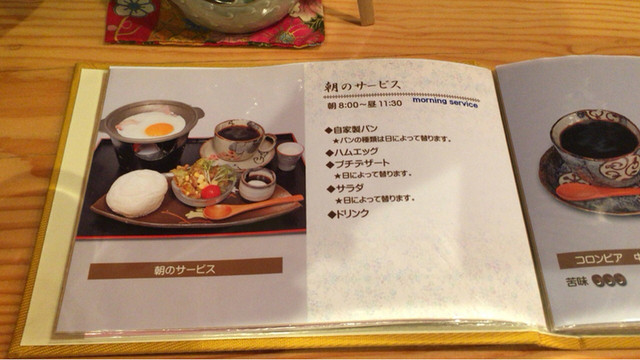 朝のサービス
朝のサービス
朝8:00～昼11:30 morning service
◆自家製パン
★パンの種類は日によって替ります。
◆ハムエッグ
◆プチデザート
★日によって替ります。
◆サラダ
★日によって替ります。
◆ドリンク
コロンビア
苦味